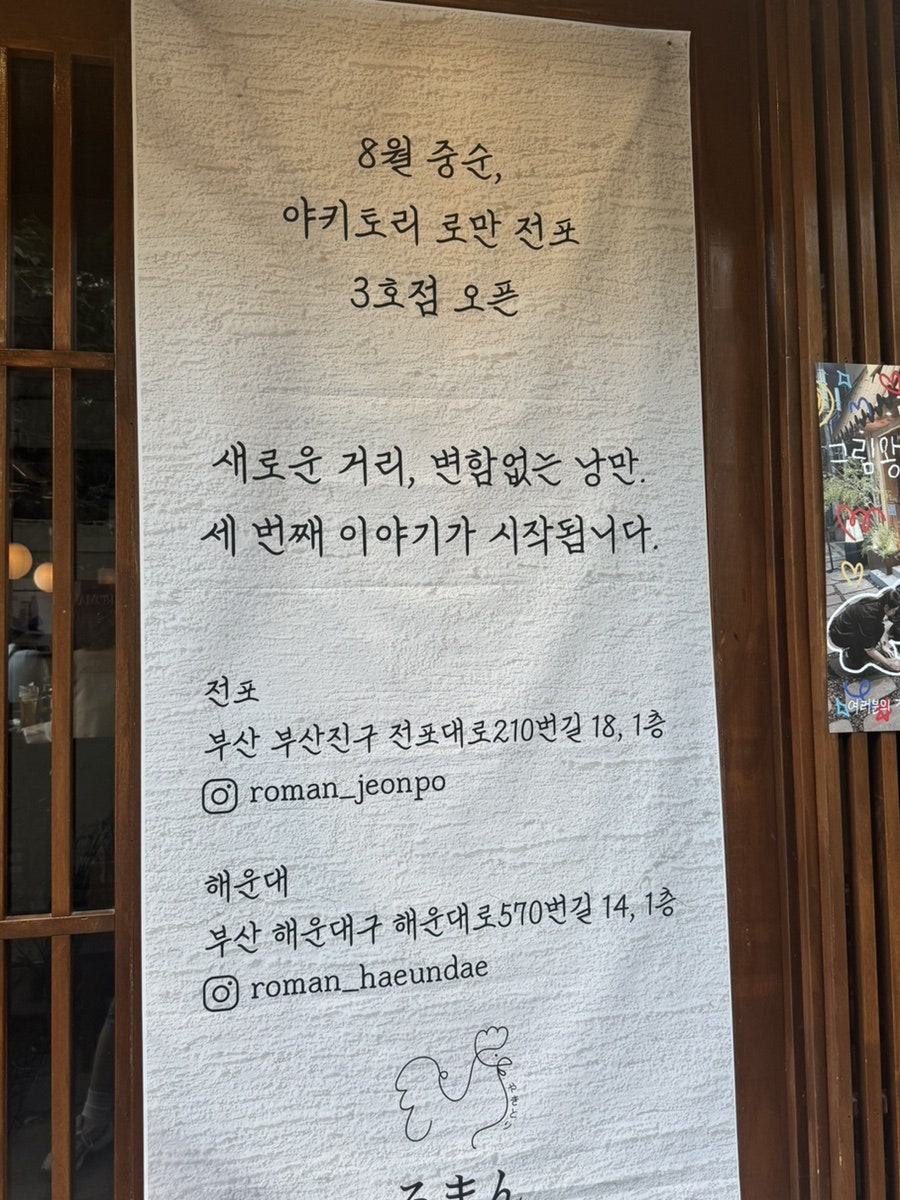 8월 중순,
야키토리 로만 전포
3호점 오픈
새로운 거리, 변함없는 낭만.
세 번째 이야기가 시작됩니다.
전포
부산 부산진구 전포대로210번길 18, 1층
roman_jeonpo
해운대
부산 해운대구 해운대로570번길 14, 1층
roman_haeundae
やきとり
ろまん
크림왕
여러분의